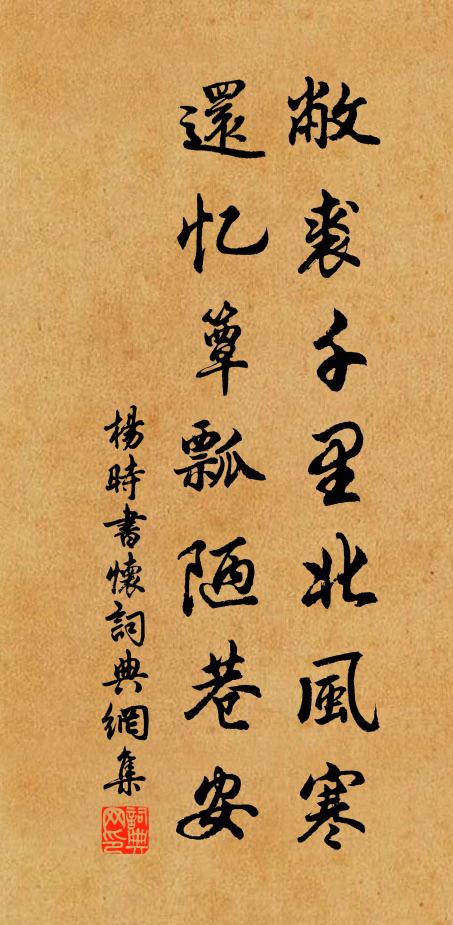 敝裘千里北風寒
還忆簞瓢陋巷安
楊時書懷詞典網集
詞典网印